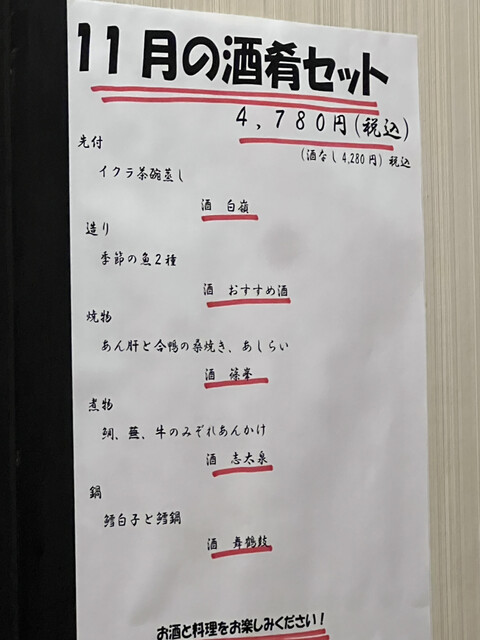 11月の酒肴セット
4,780円(税込)
(酒なし4,280円) 税込
先付
イクラ茶碗蒸し
酒 白嶺
造り
季節の魚2種
酒 おすすめ酒
焼物
あん肝と合鴨の桑焼き、あしらい
酒 篠峯
煮物
鯛、蕪、牛のみぞれあんかけ
酒 志太泉
鍋
鱈白子と鱈鍋
酒 舞鶴鼓
お酒と料理をお楽しみください!